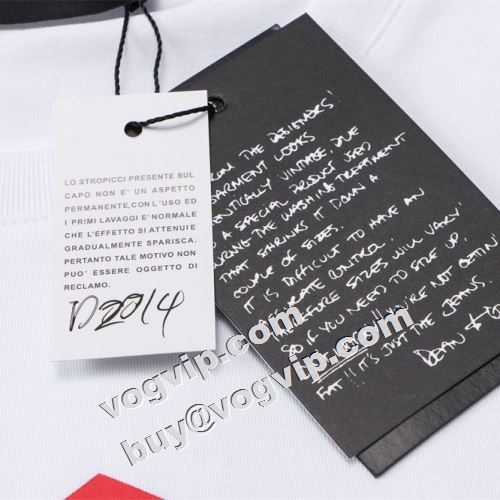 LO STROPICCI PRESENTE SUL
CAPO NON E' UN ASPETTO
PERMANENTE,CON L'USO ED
I PRIMI LAVAGGI E' NORMALE
CHE L'EFFETTO SI ATTENUI E
GRADUALMENTE SPARISCA.
PERTANTO TALE MOTIVO NON
PUO' ESSERE OGGETTO DI
RECLAMO.
D2214
THE DESIGNERS!
GARMENT LOOKS
VINTAGE, DUE
A SPECIAL PRODUCT USED
DURING THE WASHING TREATMENT
THAT SHRINKS IT DOWN A
COUPLE OF SIZES.
IT IS DIFFICULT TO HAVE AN
ACCURATE CONTROL,
THEREFORE SIZES WILL VARY
SO IF YOU NEED TO SIZE UP,
YOU'RE NOT GETTIN'
FAT!! IT'S JUST THE JEANS.
DEAN &
vogvip.com
buy@vogvip.com